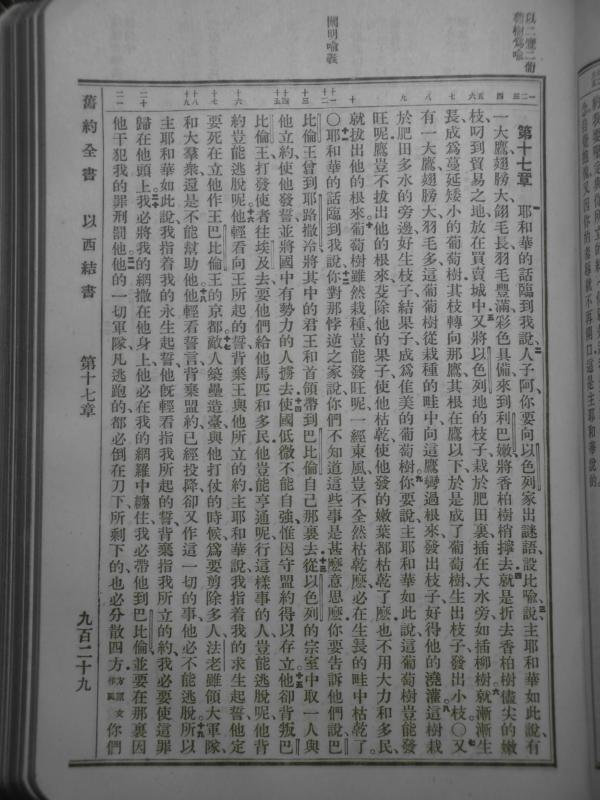 以二鷹二葡
萄樹爲喻
闡明喻義
第十七章 耶和華的話臨到我說人子阿你要向以色列家出謎語設比喻說主耶和華如此說有
一大鷹翅膀大翎毛長羽毛豐滿彩色具備來到利巴嫩將香柏樹梢擰去就是折去香柏樹儘尖的嫩
枝叼到貿易之地放在買賣城中又將以色列地的枝子栽於肥田裏插在大水旁如插柳樹就漸漸生
長成爲蔓延矮小的葡萄樹其枝轉向那鷹其根在鷹以下於是成了葡萄樹生出枝子發出小枝〇又
有一大鷹翅膀大羽毛多這葡萄樹從栽種的畦中向這鷹彎過根來發出枝子好得他的澆灌這樹栽
於肥田多水的旁邊好生枝子結果子成爲佳美的葡萄樹你要說主耶和華如此說這葡萄樹豈能發
旺呢鷹豈不拔出他的根來芟除他的果子使他枯乾使他發的嫩葉都枯乾了麼也不用大力和多民
就拔出他的根來葡萄樹雖然栽種豈能發旺呢一經東風豈不全然枯乾麼必在生長的畦中枯乾了
〇耶和華的話臨到我說你對那悖逆之家說你們不知道這些事是甚麼意思麼你要告訴他們說巴
比倫王曾到耶路撒冷將其中的君王和首領帶到巴比倫自己那裏去從以色列的宗室中取一人與
他立約使他發誓並將國中有勢力的人擄去使國低微不能自強惟因守盟約得以存立他卻背叛巴
比倫王打發使者往埃及去要他們給他馬匹和多民他豈能亨通呢行這樣事的人豈能逃脫呢他背
約豈能逃脫呢他輕看向王所起的誓背棄王與他所立的約主耶和華說我指着我的永生起誓他定
要死在立他作王巴比倫王的京都敵人築壘造臺與他打仗的時候爲要剪除多人法老雖領大軍隊
和大羣衆還是不能幫助他他輕看誓言背棄盟約已經投降卻又作這一切的事他必不能逃脫所以
主耶和華如此說我指着我的永生起誓他既輕看指我所起的誓背棄指我所立的約我必要使這罪
歸在他頭上我必將我的網撒在他身上他必在我的網羅中纏住我必帶他到巴比倫並要在那裏因
他干犯我的罪刑罰他他的一切軍隊凡逃跑的都必倒在刀下所剩下的也必分散四方方原文作風你們
舊約全書 以西結書 第十七章 九百二十九